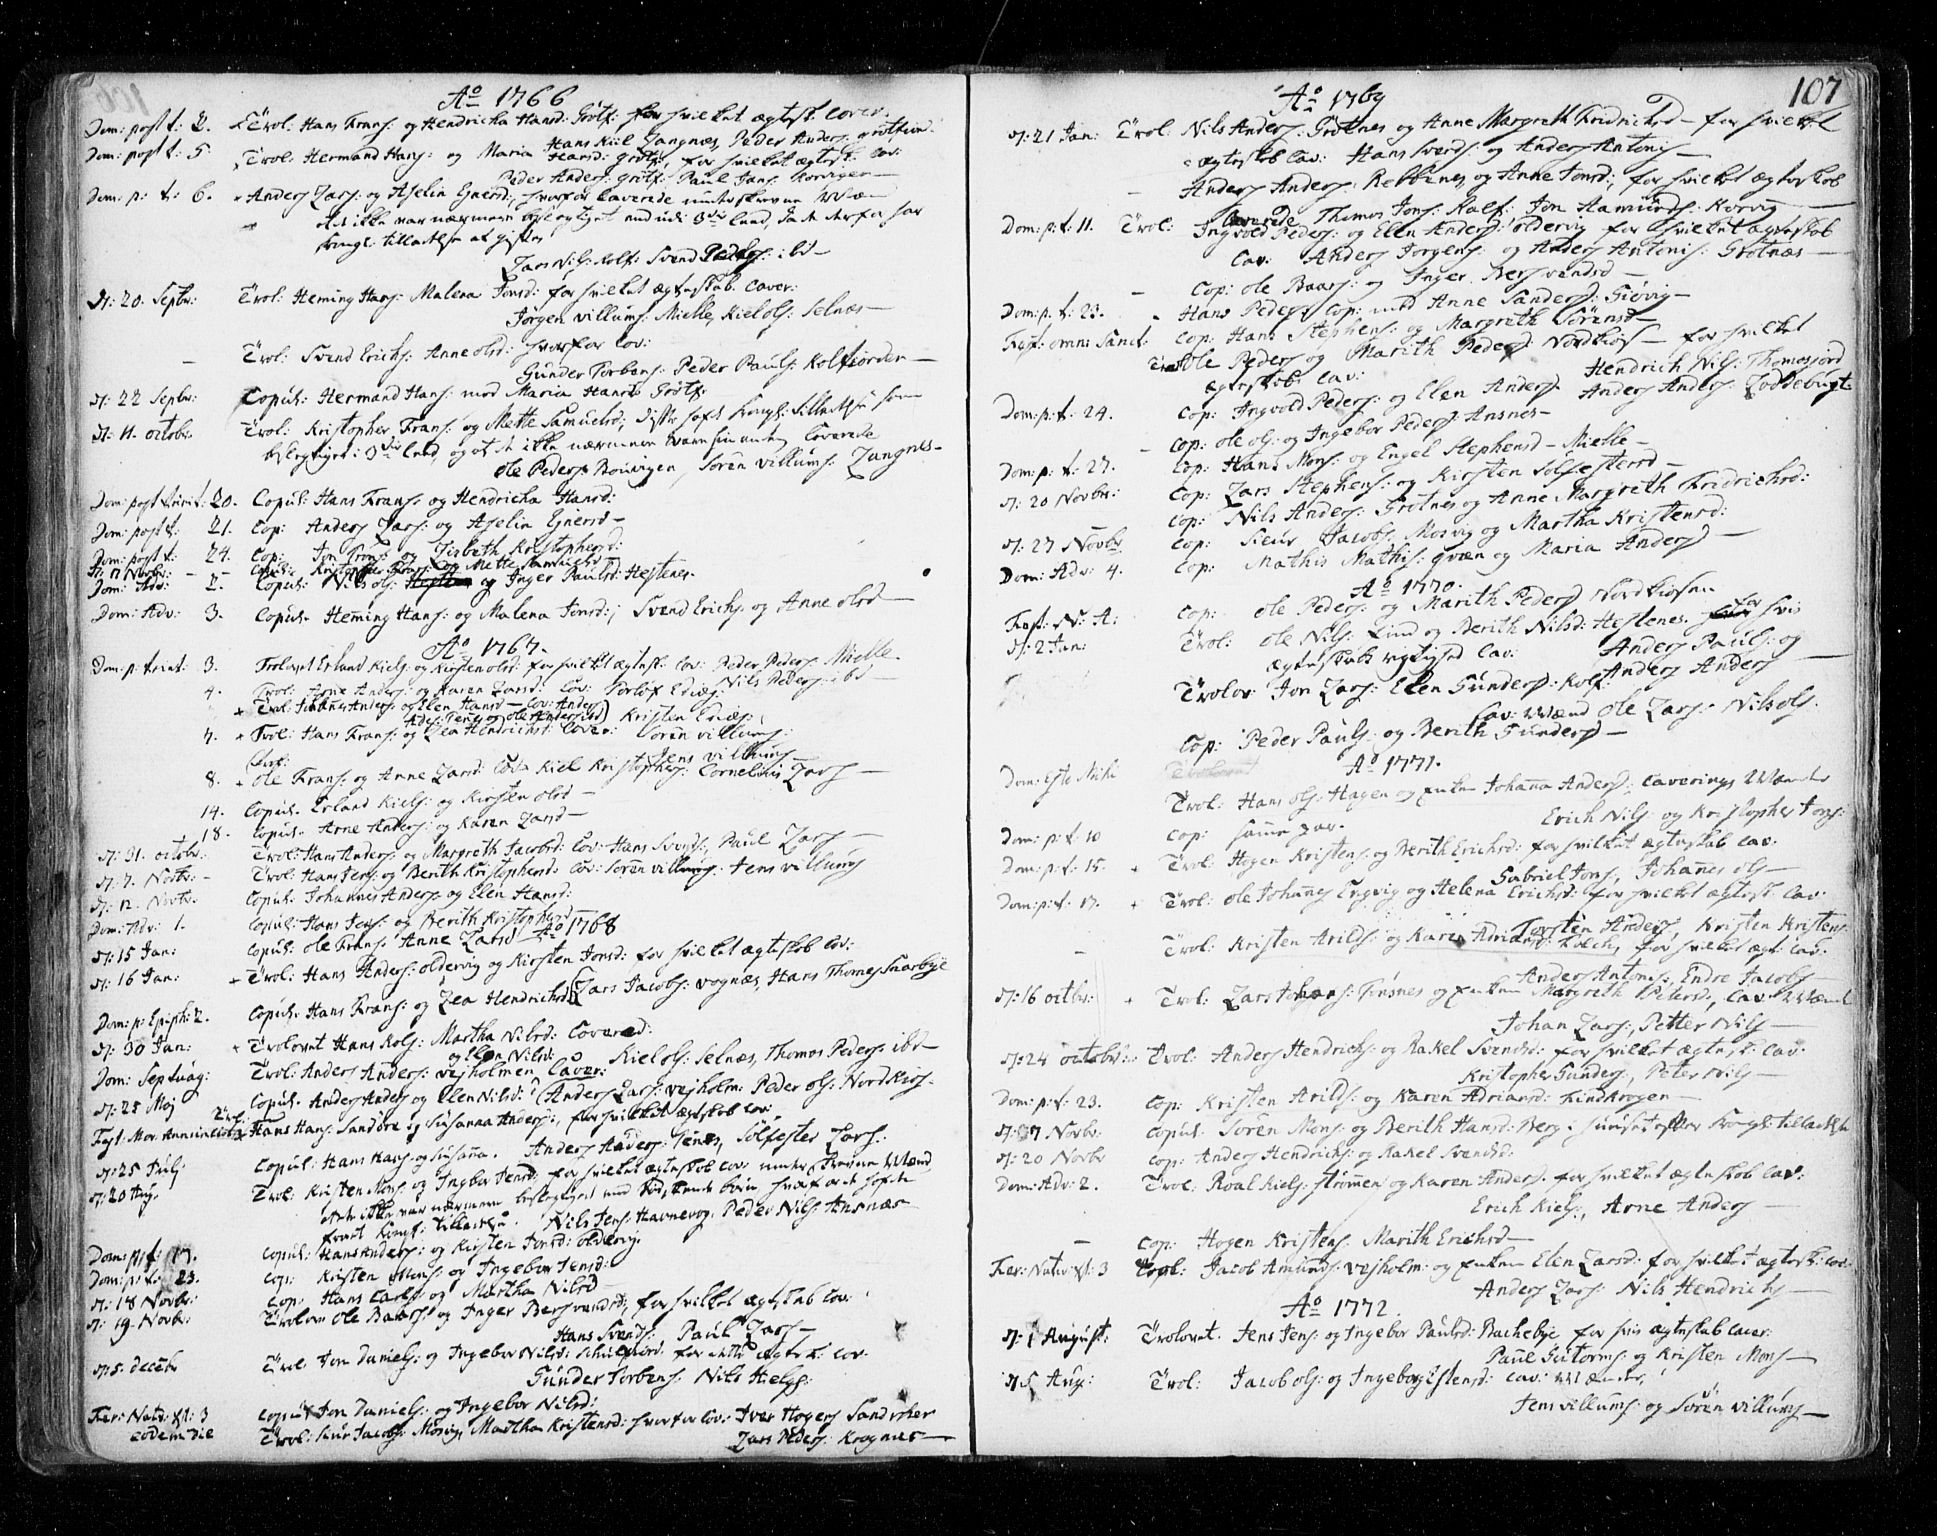 Aº 1766
Dom: post t: 2. Trol: Hans Frans: og Hendricha Hansd: Grötf: for hvilket ægtesk: caver.
Hans Kiil Langnes, Peder Anders: grötf
Dom: post t: 5. Trol: Hermand Hans: og Maria Hansd: Grötf, for hvilket ægtesk: cav:
Peder Anders: Grötf: Paul Jans:
Dom: p: t: 6. Anders Lars: og Aselin Ejnersd:, hvorfor Caverede underskrevne Mænd
at de ikke var nærmere besl. end udi 3die leed,
kongl: tilladelse at gifte
Lars Nils: Kolf: Svend Peders: ibd
D: 20. Septbr: Trol: Heming Hans: Malena Jonsd: for hvilket ægteskab caver:
Jörgen Villums: Mielle, Kiel Ols: Selnæs
Trol: Svend Erichs: Anne Olsd: hvorfor Cov:
Gunder Torbens: Peder Pauls: Kolfiorden
D: 22 Septbr: Copul: Hermand Hans: med Maria Hansd: Grötf:
D: 11. octobr. Trol: Kristopher Frans: og Mette Samuelsd; disse hafde kongl: Tilladelse som
beslegtigede i 3die leed, og at de ikke nærmere vare Coverede
Ole Peders: , Sören Villums: Langnes
Dom: post trinit: 20. Copul: Hans Frans: og Hendricha Hansd:
Dom: post t: 21. Cop: Anders Lars: og Aselin Ejnersd
Dom: post t: 24. Cop: Jon Frans: og Lisbeth Kristophersd:
D: 17 Novbr: Copul: Kristopher Frans: og Mette Samuelsd
Dom: Adv: 2. Copul: Nils Ols: og Inger Paulsd: Hestenes
Dom: Adv: 3. Copul: Heming Hans: og Malena Jonsd:; Svend Erichs: og Anne Olsd
Aº 1767.
Dom: p: trinit: 3. Trolovet Erland Kiels: og Kirsten Olsd: for hvilket ægtesk: cov: Peder Peders: Mielle
4. Trol: Arne Anders: og Karen Larsd: Cov: Torlof Nils Peders: ibd
Trol: Johannes Anders: og Elen Hansd — Cov: Anders
7. Trol: Hans Frans: og Lea Hendrichsd: Cover: Sören Villums:
Jens Villums
8. Ole Frans: og Anne Larsd: Cov: Kiel Kristophers: Cornelius Lars
14. Copul. Erland Kiels: og Kirsten Olsd
18. Copul. Arne Anders: og Karen Larsd
D: 31. octobr: Trol: Hans Anders: og Margreth Jacobsd: Cov: Hans Svends:, Paul Lars
D: 7. Novbr: Trol: Hans Jens: og Berith Kristophersd: Cov: Sören Villums: Jens Villums
D: 12. Novbr Copul: Johannes Anders: og Elen Hansd:
Dom: Adv: 1. Copul: Hans Jens: og Berith Kristophersd
Aº 1768
D: 15 Jan: Copul: Ole Frans: Anne Larsd
D: 16 Jan: Trol: Hans Anders: oldervig og Kirsten Jonsd: for hvilket ægteskab cov:
Lars Jacobs: vognæs, Hans Thomes: Snarbye
Dom: p: Epiph: 2. Copul. Hans Frans: og Lea Hendrichsd
D: 30 Jan: Trolovet Hans Kols: Martha Nilsd: Covered:
Kiel ols: Selnæs, Thomos Peders: ibd
Dom: Septuag: Trol: Anders Anders: vejholmen og Elen Nilsd: Caver:
Anders Lars: vejholm: Peder ols: Nordkios.
D: 25 Maj Copul: Anders Anders: og Elen Nilsd:
Fest: Mar. Annunciat: Trol: Hans Hans: Sandöre og Susanna Andersd:, for hvilket ægteskab cov:
Anders Anders: Tenes, Sölfester Lars:
D: 25 Julj Copul: Hans Hans: og Susana.
D: 20 Aug. Trol: Kristen Mons: og Ingebor Jensd: for hvilket ægteskab Cov: underskrevne Mænd,
at de ikke var nærmere beslegtiget end
kongl: tilladelse. Nils Jens: Havnevog. Peder Nils: Ansnæs
Dom: p: t: 17. Copul: Hans Anders: og Kirsten Jonsd: oldervig.
Dom: p: t: 23. Cop: Kristen Mons: og Ingebor Jensd:
D: 18 Novbr: Cop: Hans Carls: og Martha Nilsd
D: 19. Novbr: Trolovet Ole Baars: og Inger Bersvendsd; for hvilket ægteskab Cov:
Hans Svends:, Paul Lars
D: 5. decebr Trol: Jon Daniels: og Ingebor Nilsd: for dette ægtesk: cov:
Gunder Torbens: Nils Niels:
Fer: Nativ: xt: 3 Copul: Jon Daniels: og Ingebor Nilsd:
eodem Die Trol: Siur Jacobs: Mosvig, Martha Kristensd: hvorfor Cov: Iver Hogens: Sandoker
Lars Peders: Krognes
107
Aº 1769
D: 21 Jan: Trol: Nils Anders: Grötnes og Anne Margreth Fridrichsd — for hvilket
ægteskab Cav: Hans Svends: og Anders Antonis
Anders Anders: Rebbenes og Anne Jonsd:, for hvilket ægteskab
Caverede Thomos Jons: Kolf: Jon Aamunds: Korvig
Dom: p: t: 11. Trol: Ingvold Peders: og Elen Andersd: oldervig for hvilket ægteskab
Cav: Anders Jörgens: og Anders Antonis: Grötnæs
Cop: Ole Baars: og Inger Bersvendsd
Dom: p: t: 23. Hans Peders: Cop: med Anne Sandersd: Giövig
Fest: omn: Sanct: Cop: Hans Stephens: og Margreth Sörensd
Trol: Ole Peders: og Marith Pedersd: Nordkios — for hvilket
ægteskab: Cav: Hendrich Nils: Thomasjord
Anders Anders: Loddebugt
Dom: p: t: 24. Cop: Ingvold Peders: og Elen Andersd
Cop: Ole Ols: og Ingebor Pedersd Ansnes
Dom: p: t: 27. Cop: Hans Mons: og Engel Stephensd — Mielle
D: 20 Novbr: Cop: Lars Stephens: og Kirsten Sölfestersd
Cop: Nils Anders: Grötnes og Anne Margreth Fridrichsd:
D: 27 Novbr Cop: Siur Jacobs: Mosvig og Martha Kristensd:
Dom: Adv: 4. Cop: Mathis Mathis: qvæn og Maria Andersd
Aº 1770.
Fest: N: A: Cop: Ole Peders: og Marith Pedersd Nordkiosen
D: 2 Jan: Trol: Ole Nils: Lind og Berith Nilsd: Hestenes. for hvis
ægteskabs rigtighed Cav: Anders Pauls: og
Anders Anders
Trolov: Jon Lars: Elen Gundersd: Kolf:
Cav: Mænd Ole Lars: Nils Ols.
Cop: Peder Pauls: og Berith Gundersd
Aº 1771.
Dom: Esto Mihi Trol: Hans Ols: Hagen og Enken Johanna Andersd: Caverings Mænd
Erich Nils: og Kristopher Jons:
Dom: p: t: 10 Cop: samme par.
Dom: p: t: 15. Trol: Hogen Kristens: og Berith Erichsd: for hvilket ægteskab cav.
Gabriel Jons, Johannes Ols
Dom: p: t: 17. Trol: Ole Johannes: Ergvig og Helena Erichsd: for hvilket ægtesk: Cav:
Torsten Anders, Kristen Kristens:
Trol: Kristen Arilds: og Karen Adriansd: for hvilket ægt: Cav:
Anders Antonis: Endre Jacobs
D: 16 octbr: Trol: Lars Johans: Finsnes og Enken Margreth Petersd, Cav: Mænd
Johan Lars:, Petter Nils
D: 24 octobr: Trol: Anders Hendrichs: og Rakel Svendsd: for hvilket ægtesk: Cav:
Kristopher Gunders, Peter Nils
Dom: p: t: 23. Cop: Kristen Arilds: og Karen Adriansd: Findkrogen
D: 17 Novbr: Copul: Sören Mons: og Berith Hansd: Berg: efter Kongl: tilladelse
D: 20 Novbr Cop: Anders Hendrichs: og Rakel Svendsd:
Dom: Adv: 2. Trol: Roal Kiels: Strömen og Karen Andersd. for hvilket ægteskab Cav:
Erich Kiels:, Arne Anders
Cop: Hogen Kristens: Marith Erichsd
Fer: Nativ: xt: 3 Copl: Jacob Amunds: vejholm: og Enken Elen Larsd: for hvilket ægtesk: cav:
Anders Lars: Nils Hendrichs
Aº 1772.
D: 1 August: Trolovet. Jens Jens: og Ingebor Paulsd: Bachebye for hvis ægteskab caver:
Paul Gutorms: og Kristen Mons
D 5 Aug: Trol: Jacob Ols: og Ingeborg Cav: Mænd,
Jens Villums: og Sören Villums